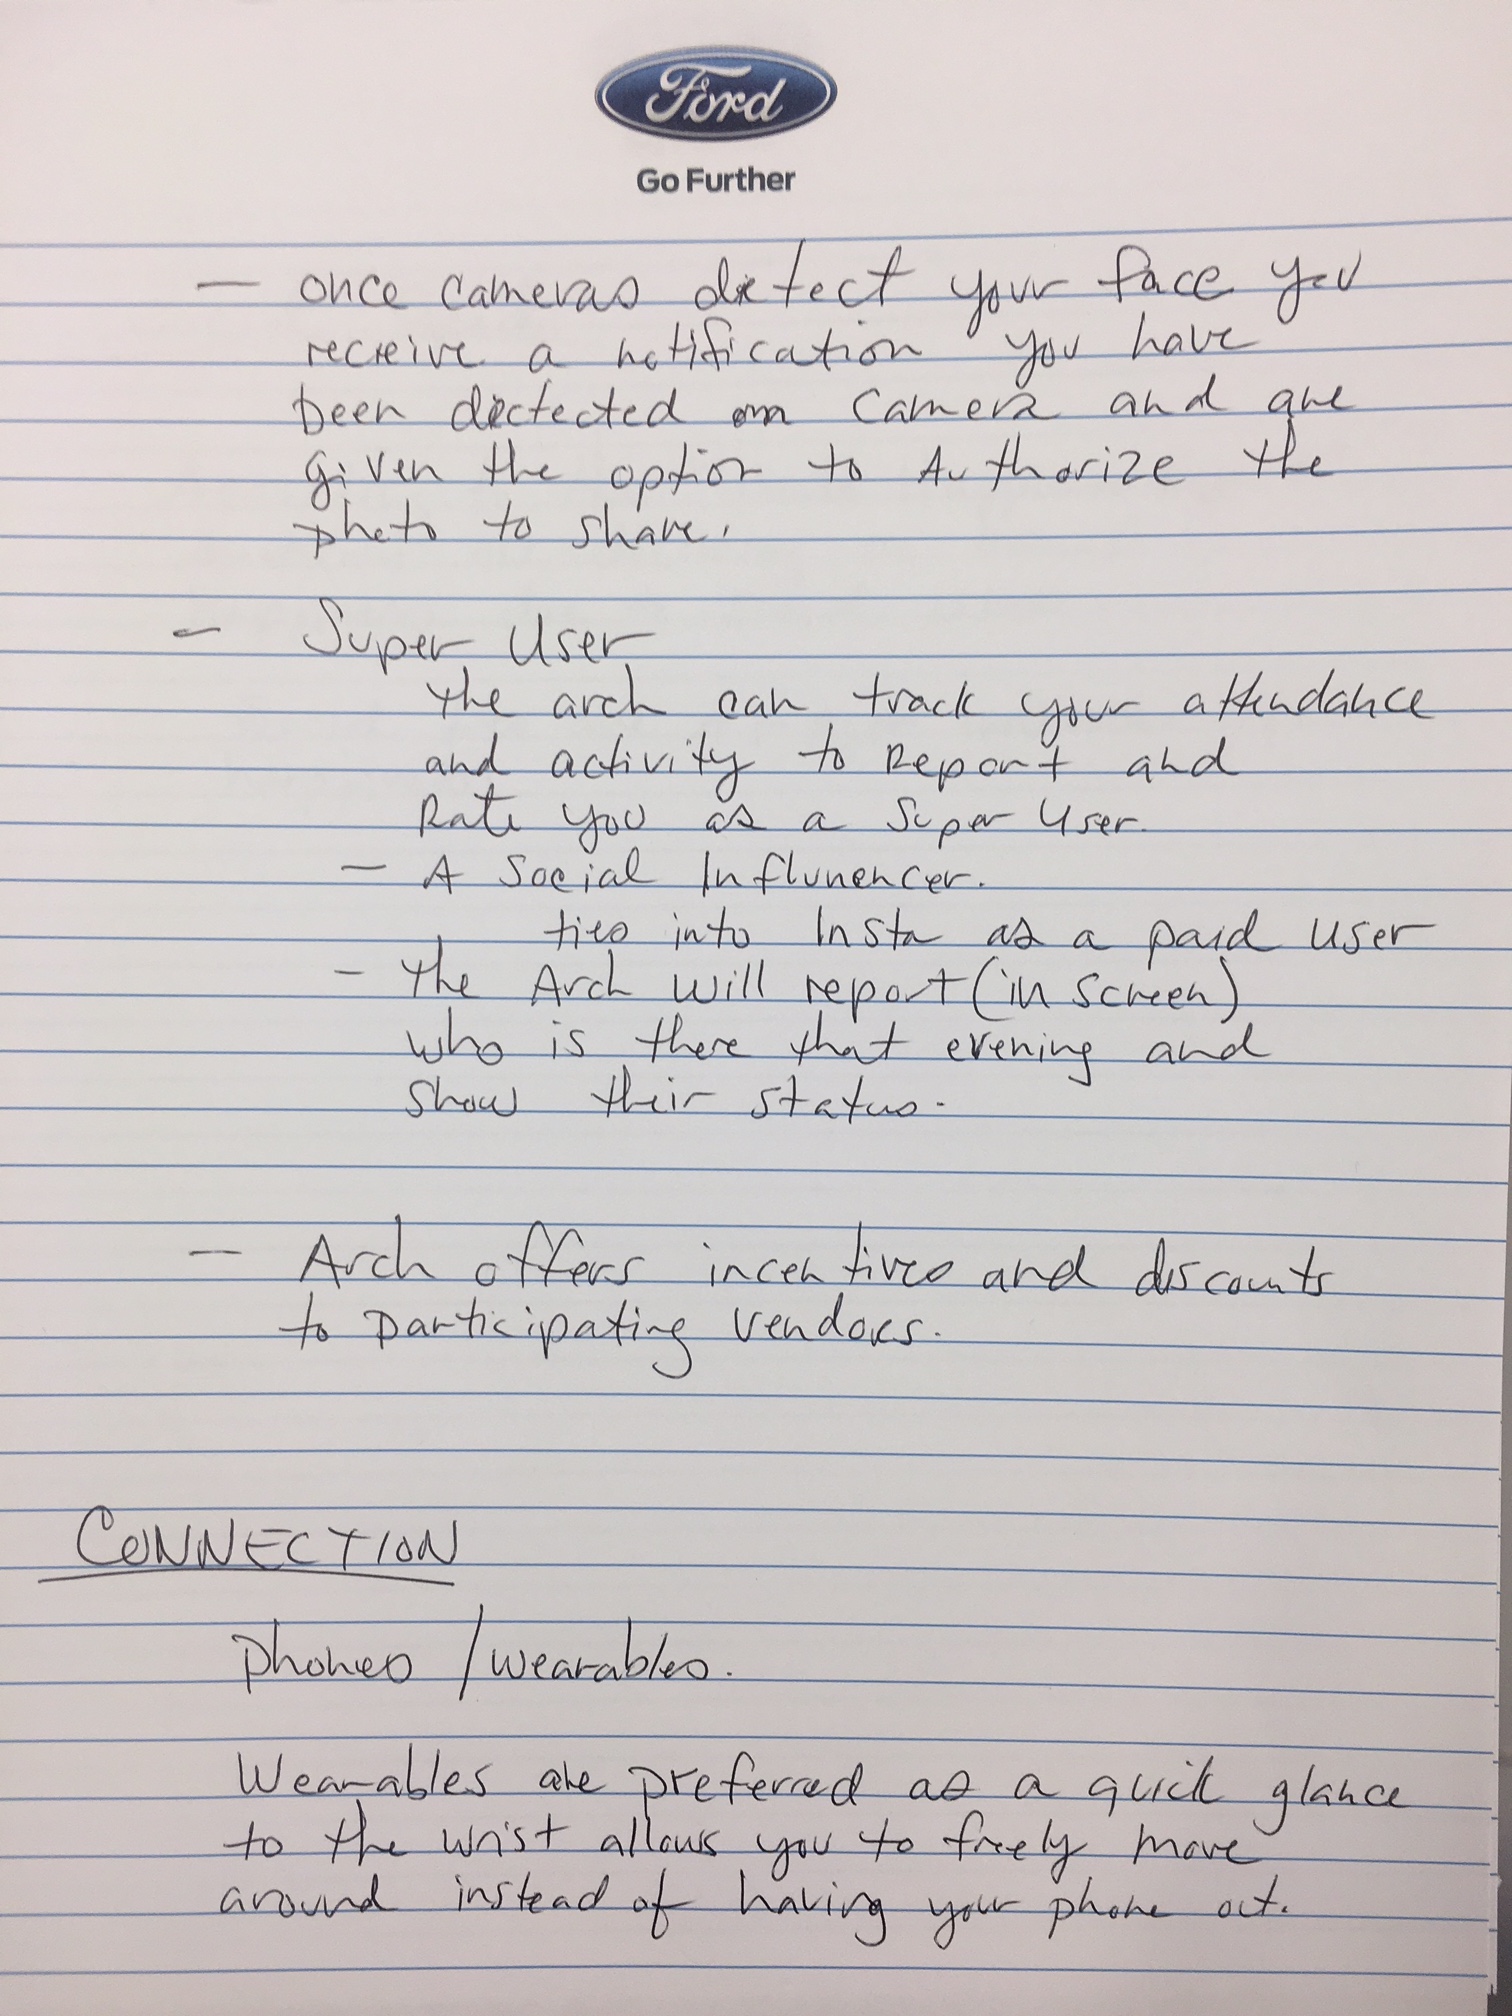 Ford
Go Further
— once cameras detect your face you
receive a notification you have
been dectected on camera and are
given the option to Authorize the
photo to share.
— Super User
the arch can track your attendance
and activity to Report and
Rate you as a Super User.
— A Social Influnencer.
ties into Insta as a paid user
— the Arch will report (in screen)
who is there that evening and
show their status.
— Arch offers incentives and discounts
to participating vendors.
CONNECTION
phones / wearables.
Wearables are preferred as a quick glance
to the wrist allows you to freely move
around instead of having your phone out.